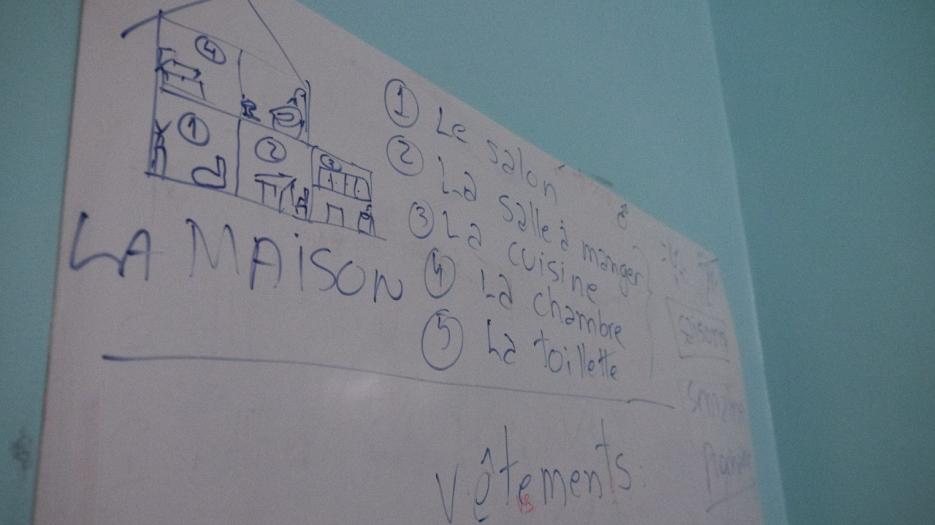 4
1
2
3
LA MAISON
1 Le salon
2 La salle à manger
3 La cuisine
4 La chambre
5 La toillette
saisons
Vêtements